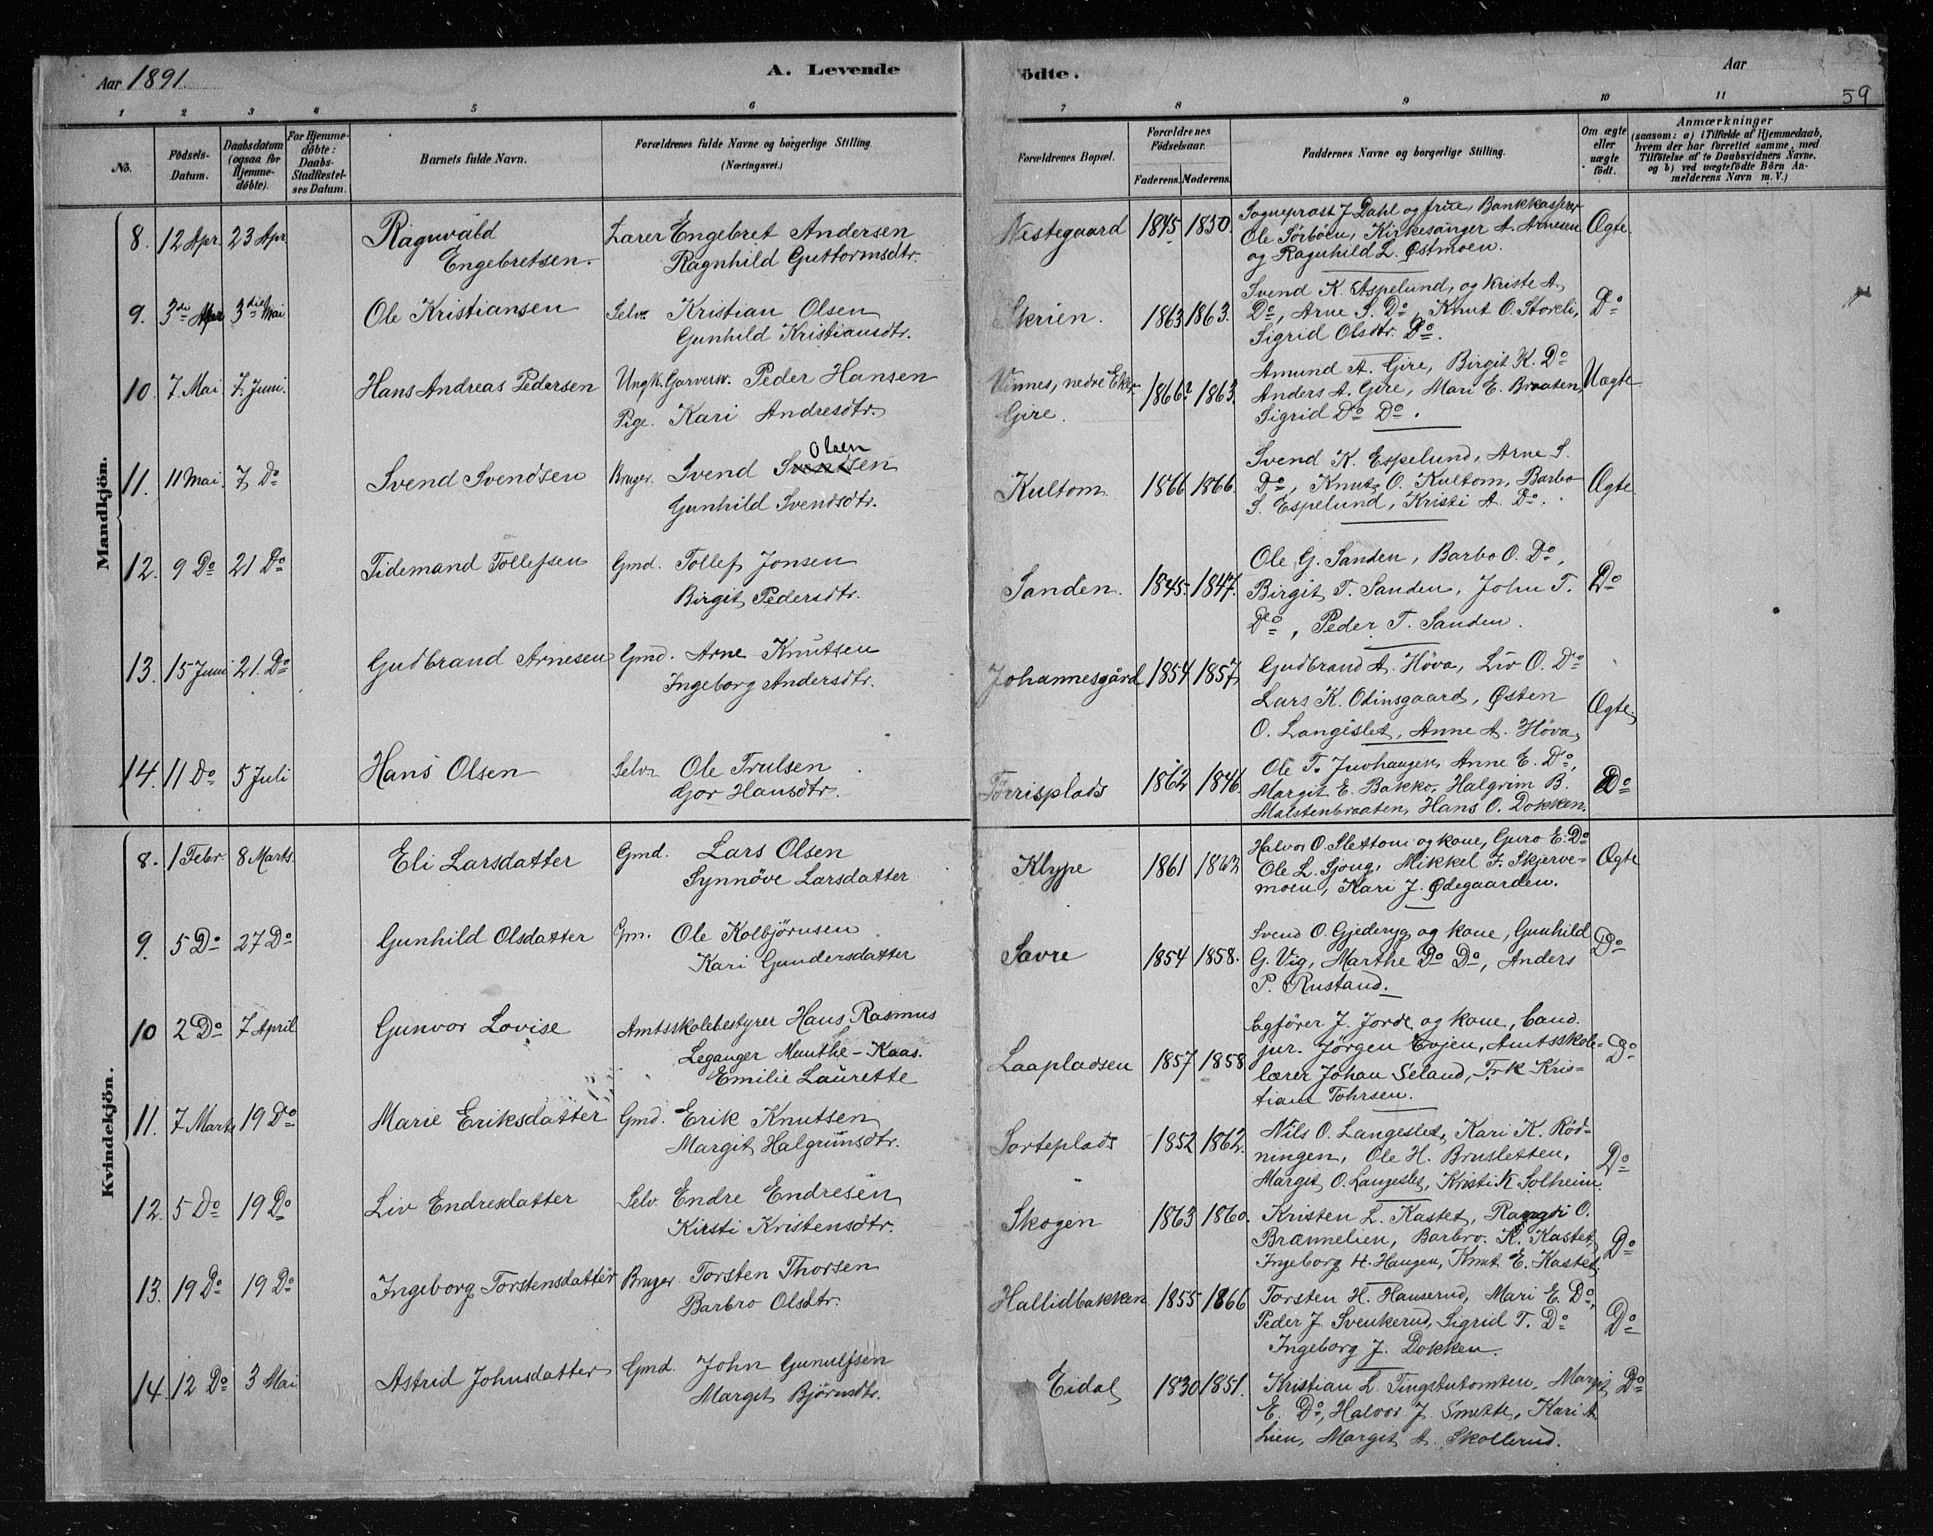 Aar 1891. A. Levende Födte. Aar
59
1 2 3 4 5 6 7 8 9 10 11
No. Födsels-Datum. Daabsdatum (ogsaa for Hjemme-döbte). For Hjemme-döbte: Daabs-Stadfæstel-ses Datum. Barnets fulde Navn. Forældrenes fulde Navne og borgerlige Stilling. (Næringsvei.) Forældrenes Bopæl. Forældrenes Födselsaar. Faderens. Moderens. Faddernes Navne og borgerlige Stilling. Om ægte eller uægte födt. Anmærkninger
(saasom: a) i Tilfælde af Hjemmedaab, hvem der har forrettet samme, med Tilföielse af to Daabsvidners Navne. og b) ved uægtefödte Börn An-melderens Navn m. V.)
Mandkjön.
8. 12 Apr. 23 Apr. Ragnvald Lærer Engebret Andersen Nestegaard 1845 1850. Sognepræst J. Dahl og frue, Bankkasserer Ægte
Engebretsen. Ragnhild Guttormsdtr. Ole Sörböen, Kirkesanger A. Arnesen
og Ragnhild L. Østmoen.
9. 3die Apr 3die Mai Ole Kristiansen Selv. Kristian Olsen Skrien. 1863 1863. Svend K. Aspelund, og Kriste A. Do
Gunhild Kristiansdtr. Do, Arne S. Do, Knut O. Storeli,
Sigrid Olsdtr. Do.
10. 7. Mai 7. Juni. Hans Andreas Pedersen Ungk. Garversv. Peder Hansen Vinnes, nedre Eker 1866? 1863. Amund A. Gire, Birgit K. Do Uægte
Pige. Kari Andresdtr. Gire. Anders A. Gire, Mari E. Braaten,
Sigrid Do Do.
11. 11 Mai. 7 Do Svend Svendsen Bruger. Svend Svendsen Olsen Kultom 1866 1866. Svend K. Espelund, Arne S. Ægte
Gunhild Svendsdtr. Do, Knut O. Kultom, Barbo
S. Espelund, Kristi A. Do.
12. 9 Do 21 Do Tidemand Tollefsen Gmd. Tollef Jonsen Sanden. 1845. 1847. Ole G. Sanden, Barbo O. Do, Do
Birgit Pedersdtr. Birgit T. Sanden, John T.
Do, Peder T. Sanden.
13. 15 Juni 21. Do Gudbrand Arnesen Gmd. Arne Knutsen Johannesgård 1854 1857 Gudbrand A. Höva, Liv O. Do Ægte.
Ingeborg Andersdtr. Lars K. Odinsgaard, Østen
O. Langeslet, Anne A. Höva,
14. 11 Do 5 Juli Hans Olsen Selv. Ole Trulsen Torrisplads 1862 1846. Ole T. Juvhaugen, Anne E. Do, Do
Gor Hansdtr. Margit E. Bakko, Halgrim B.
Malstenbraaten, Hans O. Dokken.
Kvindekjön.
8. 1 Febr. 8 Marts. Eli Larsdatter Gmd. Lars Olsen Klype 1861 1862 Halvor O. Slettom og kone, Guro E. Do Ægte
Synnöve Larsdatter Ole L. Sjong, Mikkel F. Skjerve-
moen, Kari J. Ødegaarden.
9. 5 Do 27 Do Gunhild Olsdatter Gm. Ole Kolbjörnsen Savre 1854 1858. Svend O. Gjederyg og kone, Gunhild Do
Kari Gundersdatter G. Vig, Marthe Do Do, Anders
P. Rustand.
10 2 Do 7 April Gunvor Lovise Amtsskolebestyrer Hans Rasmus Laapladsen 1857 1858 Sagförer J. Jorde og kone, Cand. Do
Leganger Munthe-Kaas. jur. Jörgen Evjen, Amtsskole-
Emilie Laurette lærer Johan Seland, Frk Kris-
tiane Tohrsen.
11. 7 Marts 19 Do Marie Eriksdatter Gmd. Erik Knutsen Sorteplads 1852 1862. Nils O. Langeslet, Kari K. Röd- Do
Margit Halgrimsdtr. ningen, Ole H. Brusletten,
Margit O. Langeslet, Kristi K Solheim.
12. 5 Do 19 Do Liv Endresdatter Selv. Endre Endresen Skogen 1863 1860. Kristen L. Kastet, Rangdi O. Do
Kirsti Kristensdtr. Brænnelien, Barbro K. Kastet,
Ingeborg H. Haugen, Knut E. Kastet,
13. 19 Do 19 Do Ingeborg Torstensdatter Bruger Torsten Thorsen Hallidbakken 1855 1866 Torsten H. Hauserud, Mari E. Do, Do
Barbro Olsdtr. Peder J. Svenkerud, Sigrid T. Do
Ingeborg J. Dokken.
14. 12 Do 3 Mai Astrid Johnsdatter Gmd. John Gunulfsen Eidal 1830 1851. Kristian L. Tingstutomten, Margit Do
Margit Björnsdtr. E. Do, Halvor J. Smette, Kari A.
Lien, Margit A. Skollerud.